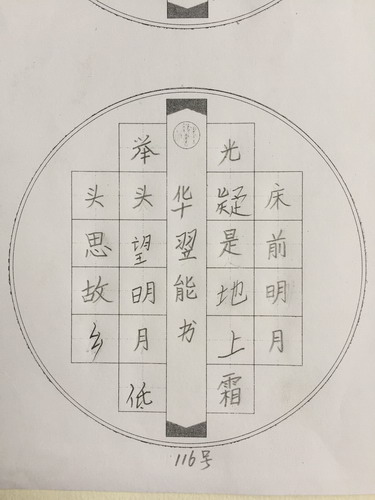 床前明月
光疑是地上霜
举头望明月低
头思故乡
华翌能书
116号